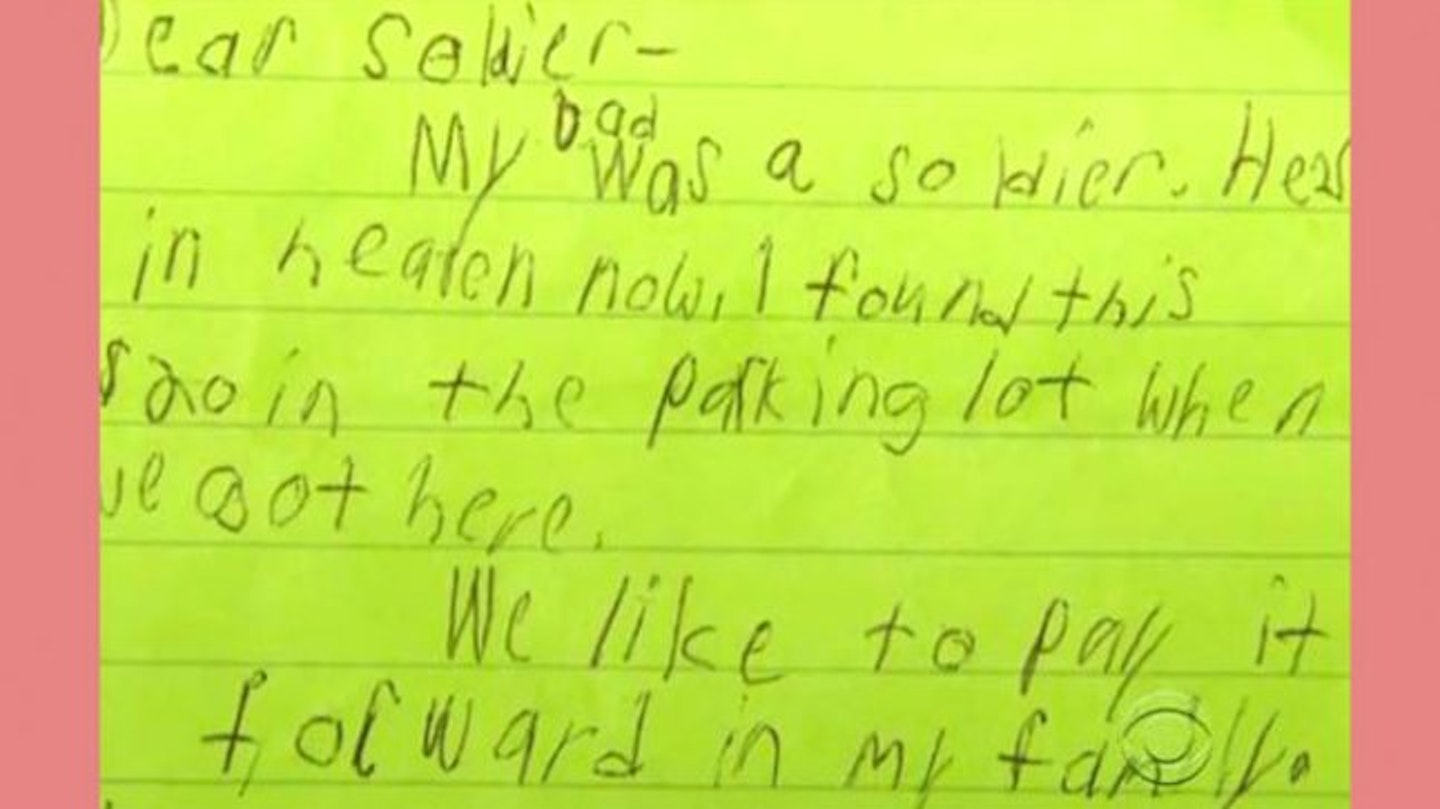 Dear soldier-
My Dad was a soldier. Hes
in heaven now, I found this
$20 in the parking lot when
we got here.
We like to pay it
forward in my family.